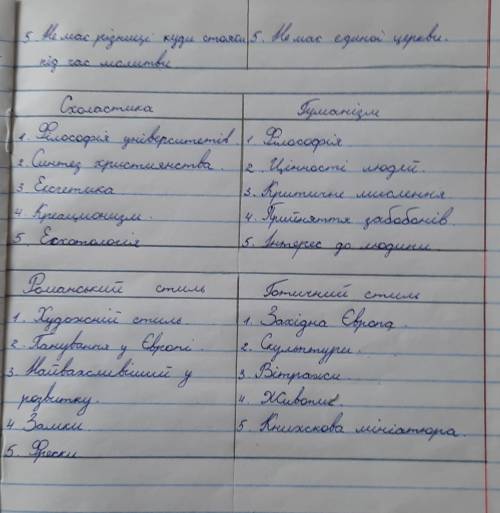 5 Немає різниці куди стояти
під час молитви
5. Немає єдиної церкви.
Схоластика
1. Філософія університетів
2. Синтез християнства.
3 Екзегетика
4. Креационизм.
5. Есхатологія
Гуманізм
1. Філософія
2. Цінності людей.
3. Критичне мислення
4. Прийняття забобонів.
5. Інтерес до людини.
Романський стиль
1. Художній стиль.
2. Панування у Європі.
3. Найважливіший у
розвитку.
4 Замки.
5. Фрески
Готичний стиль
1. Західна Європа.
2. Скульптури.
3. Вітражи.
4. Живопис.
5. Книжкова мініатюра.